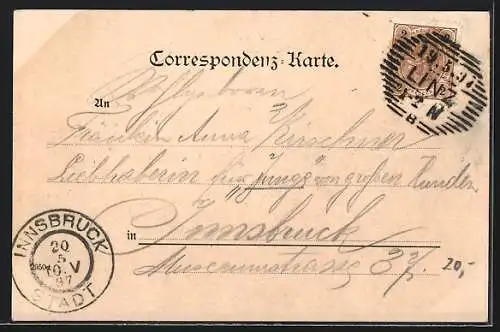 Correspondenz-Karte.
An
Hochgeboren
Fräulein Anna Kirschner
Liebhaberin für "Junge" von großen Hunden
in Innsbruck
Museumstrasse 37.
20,-
19.5.97
LINZ
INNSBRUCK
20
5
97
STADT